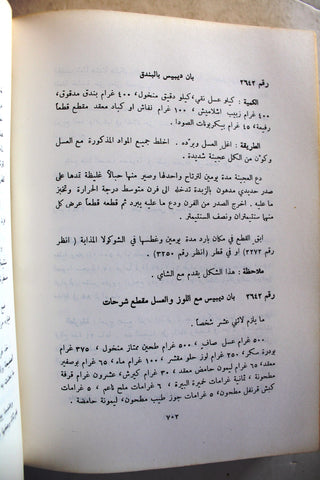 رقم ٢٦٤٣ بان ديبيس بالبندق
الكمية : كيلو عسل نقي ، كيلو دقيق منخول ، ٤٠٠ غرام بندق مدقوق ،
٤٠٠ غرام زبيب اشلاميش ، ١٠٠ غرام نفاش او كباد معقد مقطع قطعاً
رفيعة ، ٤٥ غرام بيكربونات الصودا .
الطريقة : اغل العسل وبرّده . اخلط جميع المواد المذكورة مع العسل
وكوّن من الكل عجينة شديدة .
دع العجينة مدة يومين لترتاح واحدها غليظة قدها على
صدر حديدي مدهون بالزبدة تدخله الى فرن متوسط درجة الحرارة وتخبز
ما يقارب الساعة . اخرج الصدر من الفرن ودع ليبرد ثم قطعه قطعاً عرض كل
منها سنتيمتران ونصف السنتيمتر .
ابق القطع في مكان بارد مدة يومين وغطسها في الشوكولا المذابة ( انظر
رقم ٣٢٧٢ ) او في قطر ( انظر رقم ٣٢٥٠ ) .
ملاحظة : هذا الشكل يقدم مع الشاي .
رقم ٢٦٤٤ بان ديبيس مع اللوز والعسل مقطع شرحات
ما يلزم لاثني عشر شخصاً .
٥٠٠ غرام عسل صاف ، ٥٠٠ غرام طحين ممتاز منخول ، ٣٧٥ غرام
بودرة سكر ، ٢٥٠ غرام لوز حلو مقشر ، ١٠٠ غرام ماء ، ٦٥ غرام بوصفير
معقد ، ٦٥ غرام ليمون حامض معقد ، ٣٠ غرام كيرش ، عشرون غرام قرفة
مطحونة ، ثمانية غرامات خميرة البيرة ، ٦ غرامات ملح ناعم ، ٥ غرامات
كبش قرنفل مطحون ، ٥ غرامات جوز طيب مطحون ، ليمونة حامضة .
٧٠٢